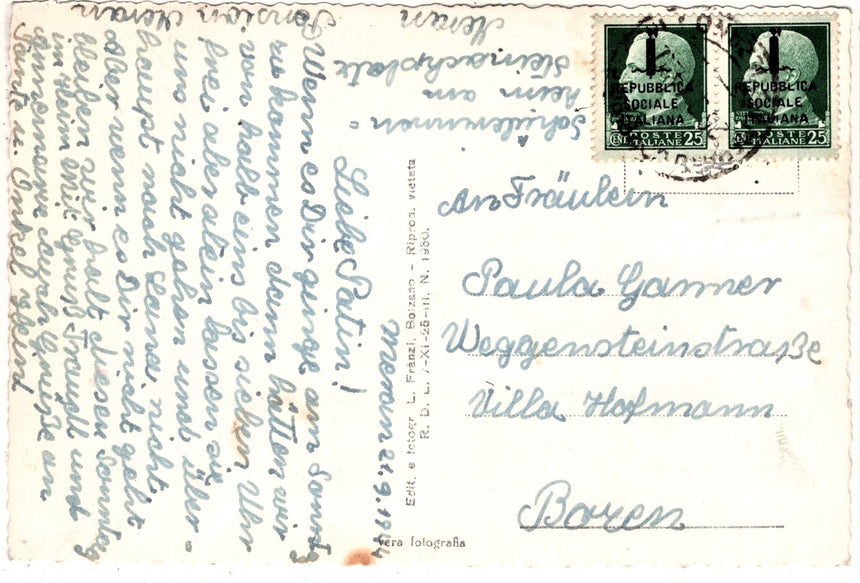 Meran 21.9.1944
Liebe Patin!
Wenn es Dir ginge am Sonntag
zu kommen dann hätten wir
von halb eins bis sieben Uhr
frei allein lassen sie
uns nicht gehen und über-
haupt nach Lana nicht.
Aber wenn es Dir nicht geht
bleiben wir halt diesen Sonntag
im Heim. Mit Gruß Traudl und
Annemarie auch Grüße an
Tante u. Onkel
Pension Meran
Schülerinnen=
heim am
Steinachplatz
Meran
Edit. e fotogr. L. Fränzl, Bolzano - Riprod. vietata
R. D. L. 7-XI-25-III. N. 1950.
vera fotografia
REPUBBLICA
SOCIALE
ITALIANA
POSTE
ITALIANE
CENT. 25
REPUBBLICA
SOCIALE
ITALIANA
POSTE
ITALIANE
CENT. 25
An Fräulein
Paula Ganner
Weggensteinstraße
Villa Hofmann
Bozen